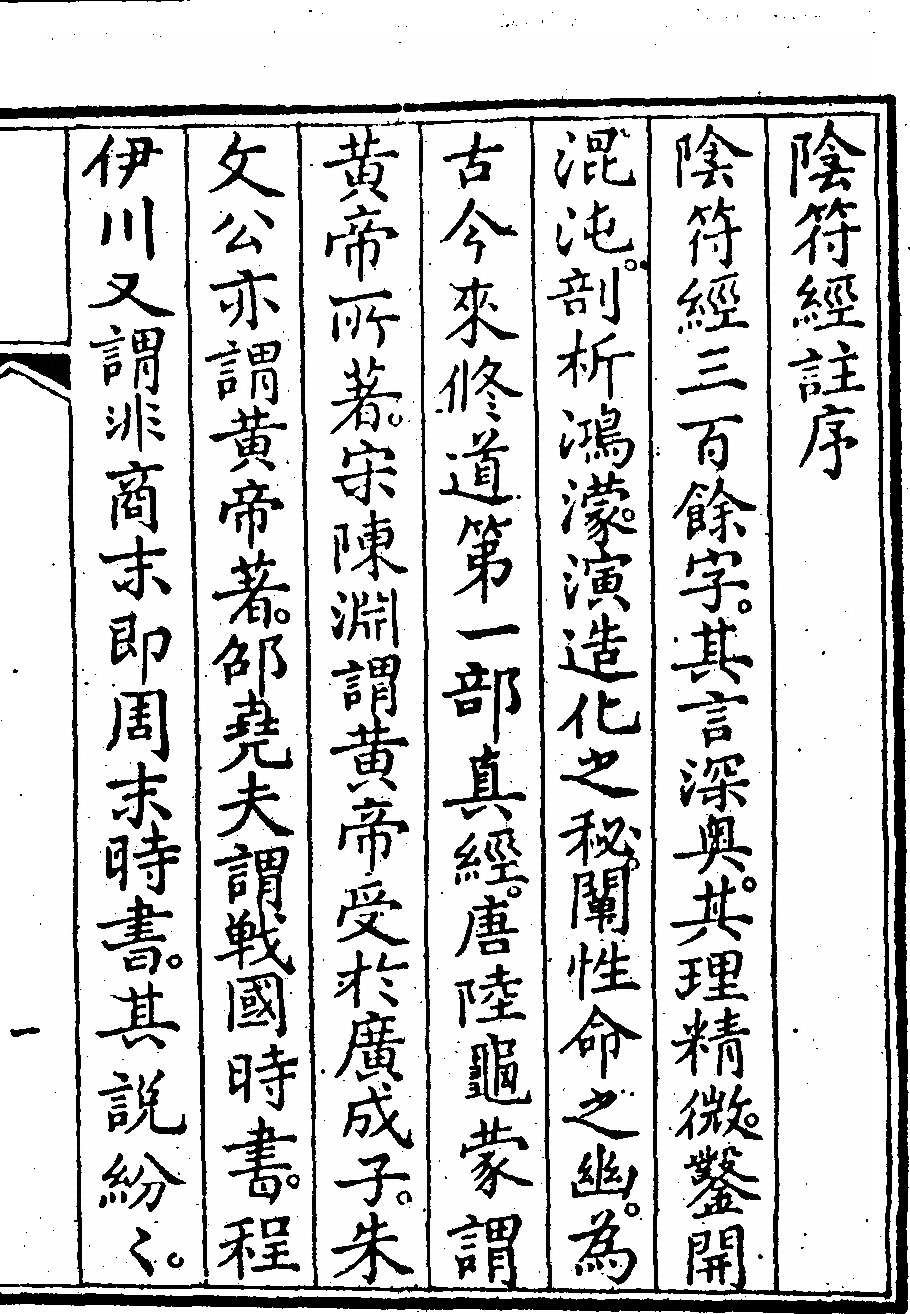 陰符經註序
陰符經三百餘字。其言深奥。其理精微。鑿開
混沌。剖析鴻濛。演造化之秘。闡性命之幽。為
古今來修道第一部真經。唐陸龜蒙謂
黄帝所著。宋陳淵謂黄帝受於廣成子。朱
文公亦謂黄帝著。邵堯夫謂戰國時書。程
伊川又謂非商末即周末時書。其說紛〻。
一